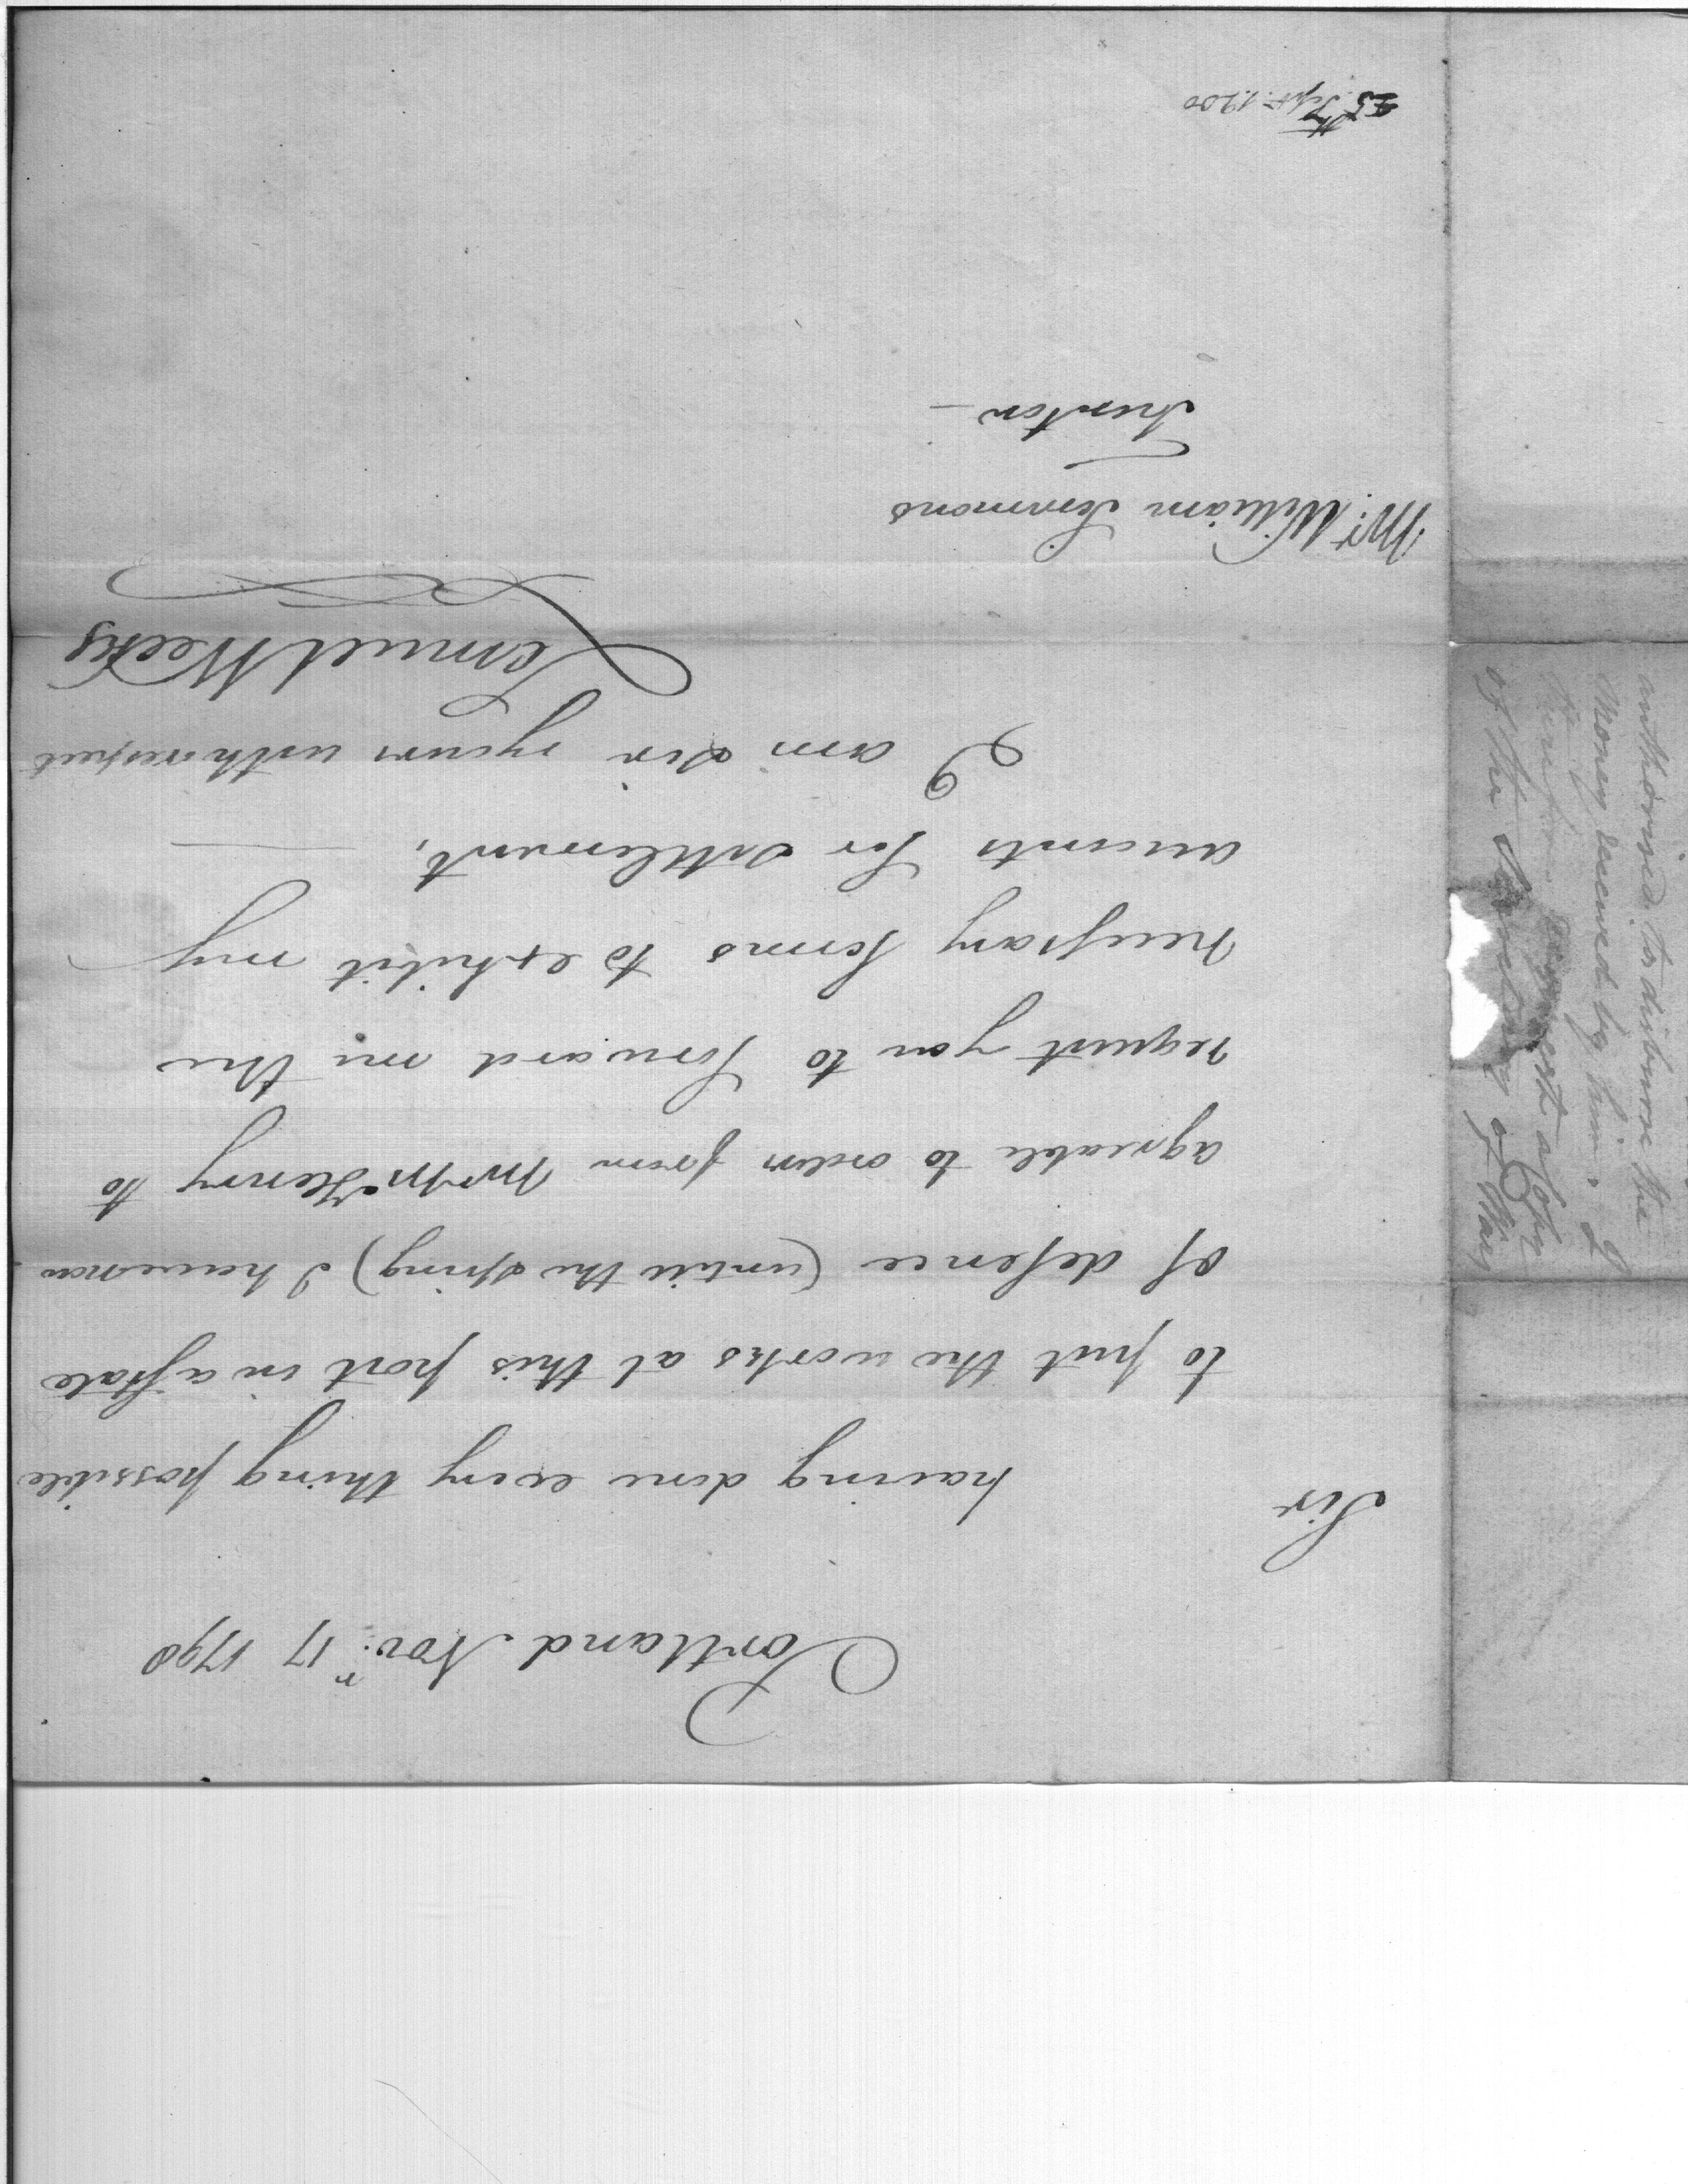 Portland Nov.r 17 1798
Sir
having done every thing possible
to put the works at this port in a state
of defence (untill the spring) I have now
agreable to orders from Mr McHenry to
request you to forward me the
necessary forms to exhibit my
accounts for settlement,
I am Sir yours with respect
Lemuel Weeks
Mr. William Simmons
Trenton –
25th Sept. 1200
authorised to disburse the
Money received by him. I
of the Secretary of War